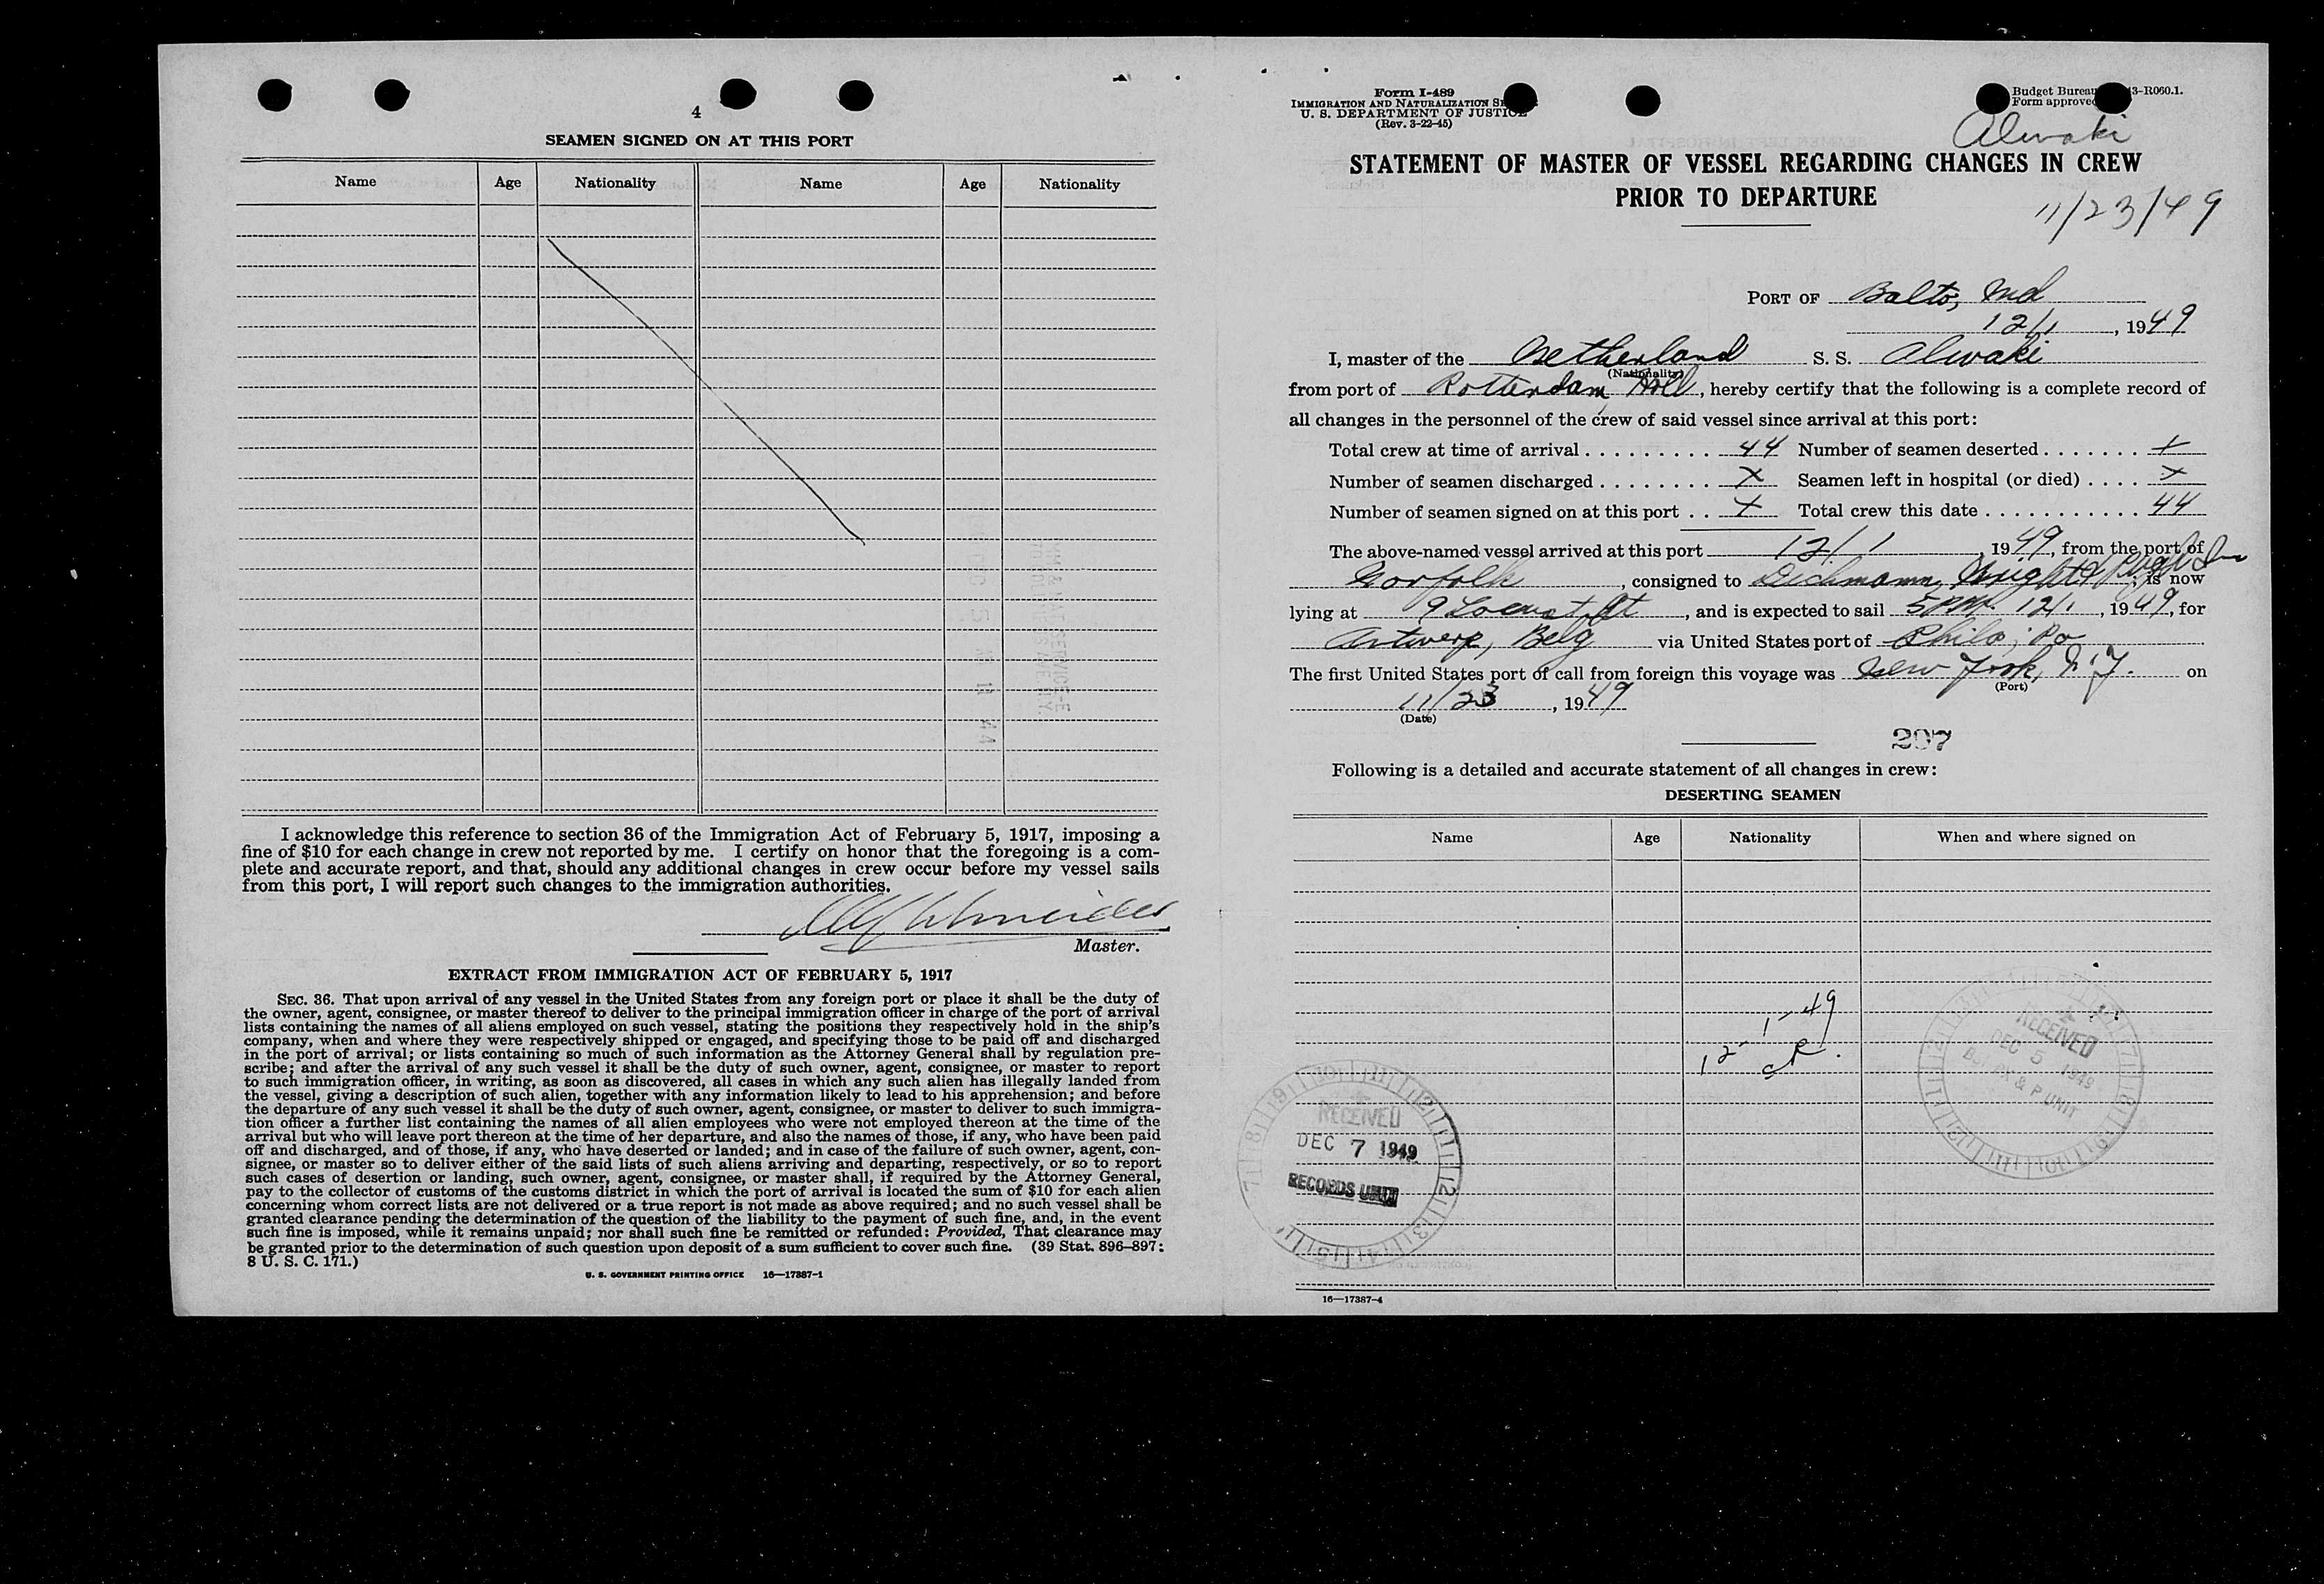 4
SEAMEN SIGNED ON AT THIS PORT
Name Age Nationality Name Age Nationality
I acknowledge this reference to section 36 of the Immigration Act of February 5, 1917, imposing a
fine of $10 for each change in crew not reported by me. I certify on honor that the foregoing is a com-
plete and accurate report, and that, should any additional changes in crew occur before my vessel sails
from this port, I will report such changes to the immigration authorities.
Master.
EXTRACT FROM IMMIGRATION ACT OF FEBRUARY 5, 1917
SEC. 36. That upon arrival of any vessel in the United States from any foreign port or place it shall be the duty of
the owner, agent, consignee, or master thereof to deliver to the principal immigration officer in charge of the port of arrival
lists containing the names of all aliens employed on such vessel, stating the positions they respectively hold in the ship's
company, when and where they were respectively shipped or engaged, and specifying those to be paid off and discharged
in the port of arrival; or lists containing so much of such information as the Attorney General shall by regulation pre-
scribe; and after the arrival of any such vessel it shall be the duty of such owner, agent, consignee, or master to report
to such immigration officer, in writing, as soon as discovered, all cases in which any such alien has illegally landed from
the vessel, giving a description of such alien, together with any information likely to lead to his apprehension; and before
the departure of any such vessel it shall be the duty of such owner, agent, consignee, or master to deliver to such immigra-
tion officer a further list containing the names of all alien employees who were not employed thereon at the time of the
arrival but who will leave port thereon at the time of her departure, and also the names of those, if any, who have been paid
off and discharged, and of those, if any, who have deserted or landed; and in case of the failure of such owner, agent, con-
signee, or master so to deliver either of the said lists of such aliens arriving and departing, respectively, or so to report
such cases of desertion or landing, such owner, agent, consignee, or master shall, if required by the Attorney General,
pay to the collector of customs of the customs district in which the port of arrival is located the sum of $10 for each alien
concerning whom correct lists are not delivered or a true report is not made as above required; and no such vessel shall be
granted clearance pending the determination of the question of the liability to the payment of such fine, and, in the event
such fine is imposed, while it remains unpaid; nor shall such fine be remitted or refunded: Provided, That clearance may
be granted prior to the determination of such question upon deposit of a sum sufficient to cover such fine. (39 Stat. 896–897;
8 U. S. C. 171.)
U. S. GOVERNMENT PRINTING OFFICE 16—17387-1
Form I-489
IMMIGRATION AND NATURALIZATION
U. S. DEPARTMENT OF JUSTICE
(Rev. 3-22-45)
Budget Bureau 43-R060.1.
Form approved
Alwaki
STATEMENT OF MASTER OF VESSEL REGARDING CHANGES IN CREW
PRIOR TO DEPARTURE
11/23/49
PORT OF Balto, Md
12/1, 1949
I, master of the Netherland S. S. Alwaki
(Nationality)
from port of Rotterdam, Holl, hereby certify that the following is a complete record of
all changes in the personnel of the crew of said vessel since arrival at this port:
Total crew at time of arrival 44 Number of seamen deserted X
Number of seamen discharged X Seamen left in hospital (or died) X
Number of seamen signed on at this port X Total crew this date 44
The above-named vessel arrived at this port 12/1, 1949, from the port of
Norfolk, consigned to Dichmann, Wright & Pugh Inc; is now
lying at 9 Locust Pt, and is expected to sail 5 PM. 12/1, 1949, for
Antwerp, Belg via United States port of Phila, Pa
The first United States port of call from foreign this voyage was New York, N.Y. on
(Port)
11/23, 1949
(Date)
207
Following is a detailed and accurate statement of all changes in crew:
DESERTING SEAMEN
Name Age Nationality When and where signed on
12-1-49
RECEIVED
DEC 5 1949
& P UNIT
RECEIVED
DEC 7 1949
RECORDS UNIT
16—17387-4